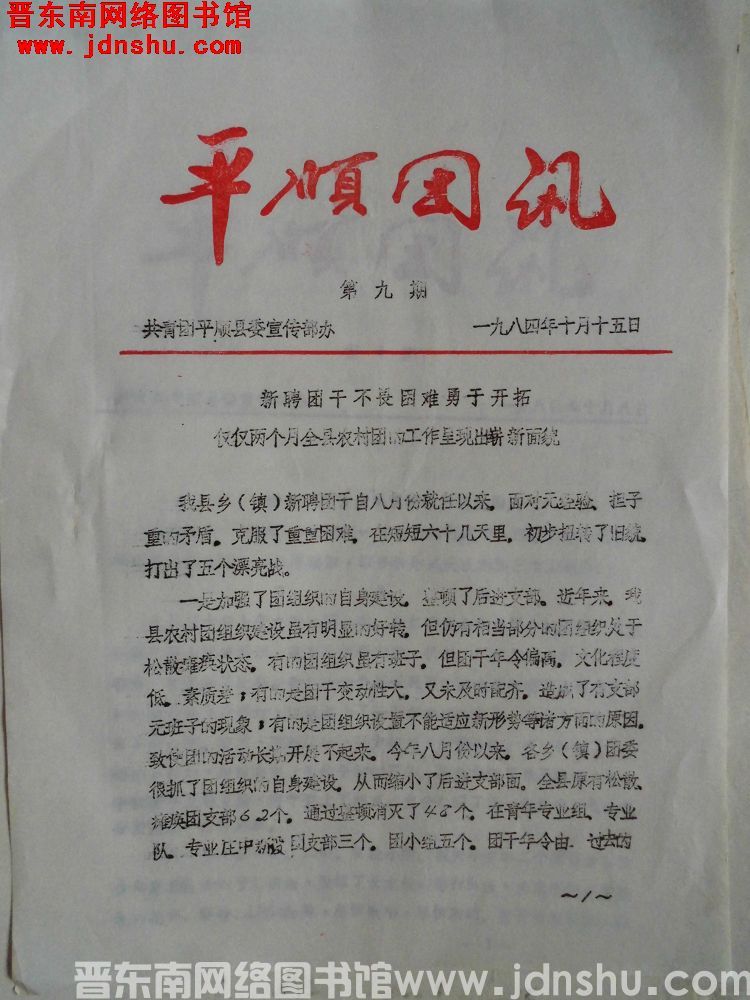 晋东南网络图书馆
www.jdnshu.com
平顺团讯
第九期
共青团平顺县委宣传部办 一九八四年十月十五日
新聘团干不畏困难勇于开拓
仅仅两个月全县农村团的工作呈现出崭新面貌
我县乡（镇）新聘团干自八月份就任以来，面对无经验、担子
重的矛盾。克服了重重困难，在短短六十几天里，初步扭转了旧貌，
打出了五个漂亮战。
一是加强了团组织的自身建设。整顿了后进支部。近年来，我
县农村团组织建设虽有明显的好转，但仍有相当部分的团组织处于
松散瘫痪状态。有的团组织虽有班子，但团干年令偏高，文化程度
低、素质差；有的是团干变动性大，又未及时配齐，造成了有支部
无班子的现象；有的是团组织设置不能适应新形势等诸方面的原因，
致使团的活动长期开展不起来。今年八月份以来，各乡（镇）团委
狠抓了团组织的自身建设，从而缩小了后进支部面。全县原有松散、
瘫痪团支部62个，通过整顿消灭了48个，在青年专业组、专业
队、专业庄中新设团支部三个，团小组五个。团干年令由 过去的
～1～
晋东南网络图书馆www.jdnshu.com